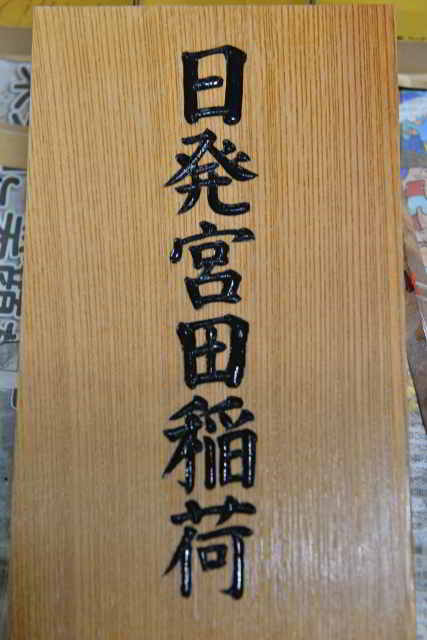 日発宮田稲荷